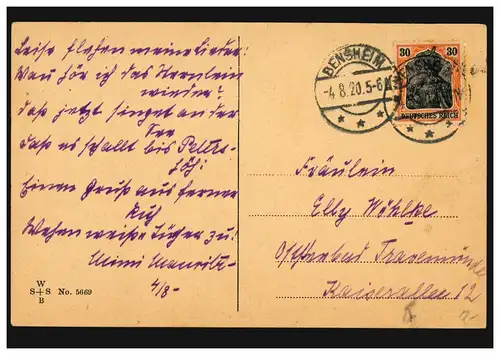 Leise flehen meine Lieder:
Wann hör ich das Sternlein
wieder?
das jetzt singet an der
See
daß es schallt bis
Einen Gruß aus ferner
Ruh
Wehen weiße Tücher zu!
Mimi
4/8-
W
S+S No. 5669
B
BENSHEIM
-4.8.20.5-6
30 30
DEUTSCHES REICH
Fräulein
Elly Wöhlke
Ostseebad Travemünde
Kaiserallee 12